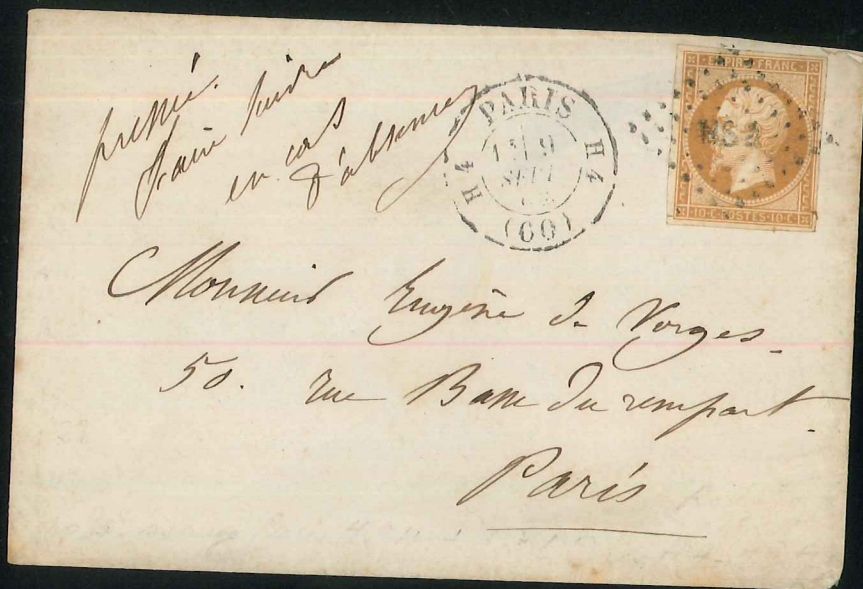 pressée.
faire suivre
en cas
d'absence
PARIS
H4
H4
SEPT
(60)
EMPIRE FRANC
MS 2
10·C·POSTES·10·C
Monsieur Eugène de Vorges.
50. rue Basse du rempart.
Paris